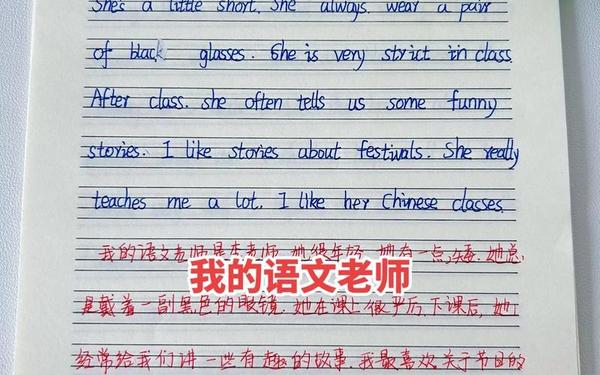 She's a little short. She always wear a pair
of black glasses. She is very strict in class.
After class. she often tells us some funny
stories. I like stories about festivals. She really
teaches me a lot. I like her Chinese classes.
我的语文老师是李老师. 她很年轻. 她有一点矮. 她总
我的语文老师
是戴着一副黑色的眼镜. 她在课上很严厉, 下课后, 她
经常给我们讲一些有趣的故事. 我最喜欢关于节日的